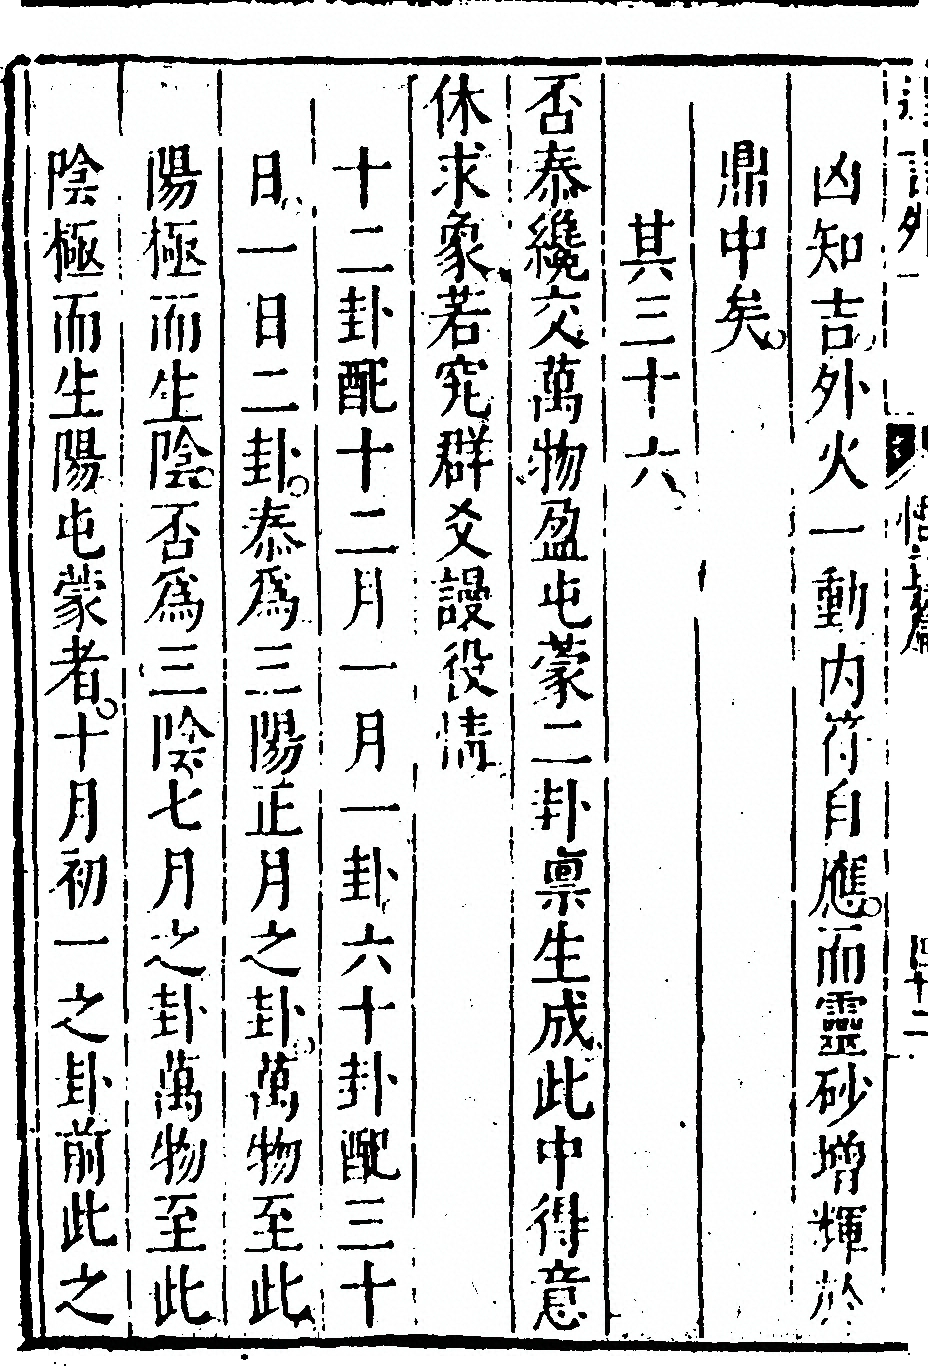 凶知吉外火一動內符自應而靈砂增輝於
鼎中矣
其三十六
否泰纔交萬物盈屯蒙二卦禀生成此中得意
休求象若究群爻謾役情
十二卦配十二月一月一卦六十卦配三十
日一日二卦泰爲三陽正月之卦萬物至此
陽極而生陰否爲三陰七月之卦萬物至此
陰極而生陽屯蒙者十月初一之卦前此之